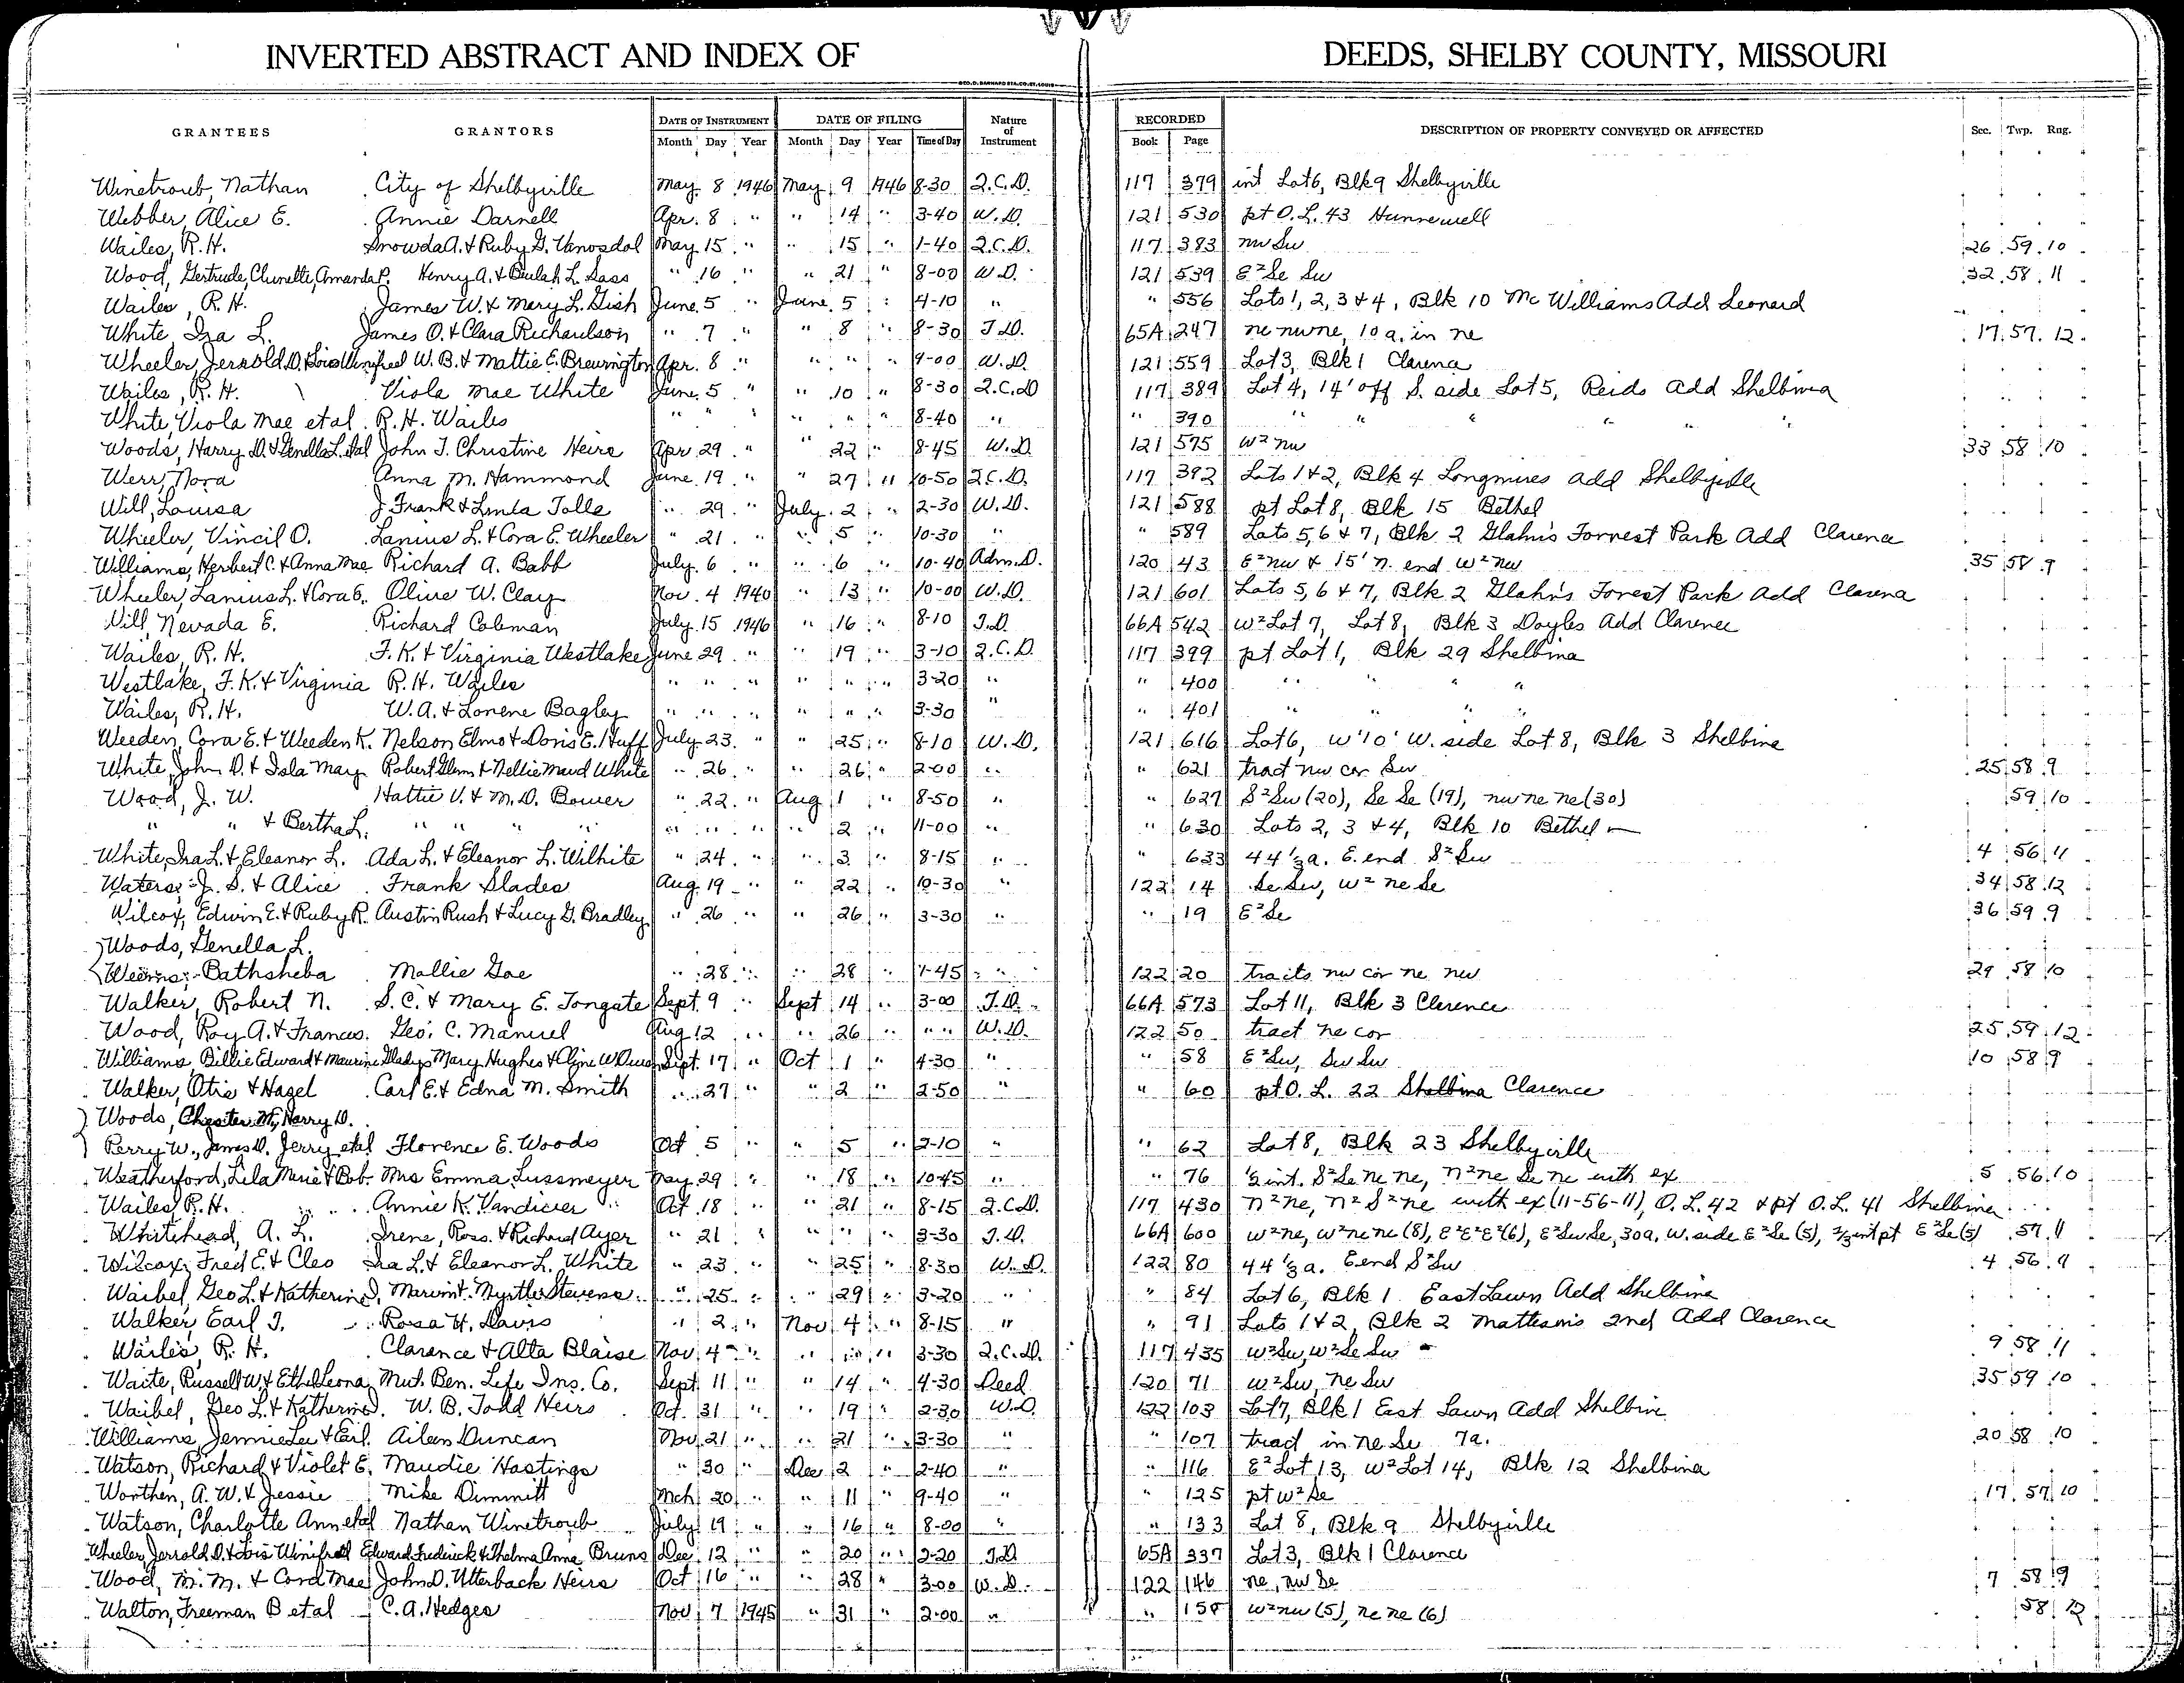 INVERTED ABSTRACT AND INDEX OF DEEDS, SHELBY COUNTY, MISSOURI
GEO. D. BARNARD STA. CO. ST. LOUIS
GRANTEES GRANTORS DATE OF INSTRUMENT DATE OF FILING Nature of Instrument RECORDED DESCRIPTION OF PROPERTY CONVEYED OR AFFECTED Sec. Twp. Rng.
Month Day Year Month Day Year Time of Day Book Page
Winetroub, Nathan City of Shelbyville May 8 1946 May 9 1946 8-30 Q.C.D. 117 379 int Lot 6, Blk 9 Shelbyville
Webber, Alice E. Annie Darnell Apr. 8 " " 14 " 3-40 W.D. 121 530 pt O.L. 43 Hunnewell
Wailes, R.H. Snowda A. & Ruby G. Vanosdol May 15 " " 15 " 1-40 Q.C.D. 117 383 nw Sw 26 59 10
Wood, Gertrude, Clunette, Amanda P. Henry A. & Beulah L. Sass " 16 " " 21 " 8-00 W.D. 121 539 E² Se Sw 32 58 11
Wailes, R.H. James W. & Mary L. Gish June 5 " June 5 " 4-10 " " 556 Lots 1, 2, 3 & 4, Blk 10 McWilliams Add Leonard
White Ira L. James O. & Clara Richardson " 7 " " 8 " 8-30 T.D. 65A 247 ne nw ne, 10 a. in ne 17 57 12
Wheeler, Jerrold D. & Lois Winifred W.B. & Mattie E. Brewington Apr. 8 " " " " 9-00 W.D. 121 559 Lot 3, Blk 1 Clarence
Wailes, R.H. Viola Mae White June 5 " " 10 " 8-30 Q.C.D 117 389 Lot 4, 14' off S. side Lot 5, Reids Add Shelbina
White, Viola Mae et al R.H. Wailes " " " " " " 8-40 " " 390 " " " " " "
Woods, Harry D. & Genella L. et al John T. Christine Heirs Apr 29 " " 22 " 8-45 W.D. 121 575 W² nw 33 58 10
Werr, Nora Anna M. Hammond June 19 " " 27 " 10-50 Q.C.D. 117 392 Lots 1 & 2, Blk 4 Longmires Add Shelbyville
Will, Louisa J Frank & Linda Tolle " 29 " July 2 " 2-30 W.D. 121 588 pt Lot 8, Blk 15 Bethel
Wheeler, Vincil O. Lanius L. & Cora E. Wheeler " 21 " " 5 " 10-30 " " 589 Lots 5, 6 & 7, Blk 2 Glahn's Forrest Park Add Clarence
Williams, Herbert C. & Anna Mae Richard A. Babb July 6 " " 6 " 10-40 Adm. D. 120 43 E² nw & 15' n. end W² nw 35 58 9
Wheeler, Lanius L. & Cora E. Olive W. Clay Nov. 4 1940 " 13 " 10-00 W.D. 121 601 Lots 5, 6 & 7, Blk 2 Glahn's Forrest Park Add Clarence
Will, Nevada E. Richard Coleman July 15 1946 " 16 " 8-10 T.D. 66A 542 W² Lot 7, Lot 8, Blk 3 Doyles Add Clarence
Wailes, R.H. F.K. & Virginia Westlake June 29 " " 19 " 3-10 Q.C.D. 117 399 pt Lot 1, Blk 29 Shelbina
Westlake, F.K. & Virginia R.H. Wailes " " " " " " 3-20 " " 400 " " " "
Wailes, R.H. W.A. & Lorene Bagley " " " " " " 3-30 " " 401 " " " "
Weeden, Cora E. & Weeden K. Nelson Elmo & Doris E. Huff July 23 " " 25 " 8-10 W.D. 121 616 Lot 6, W 10' W. side Lot 8, Blk 3 Shelbina
White, John D. & Iola May Robert Glenn & Nellie Maud White " 26 " " 26 " 2-00 " " 621 tract nw cor Sw 25 58 9
Wood, J.W. Hattie V. & M.D. Bower " 22 " Aug 1 " 8-50 " " 627 S² Sw (20), Se Se (19), nw ne ne (30) 59 10
" " & Bertha L. " " " " " " " " 2 " 11-00 " " 630 Lots 2, 3 & 4, Blk 10 Bethel
White, Ira L. & Eleanor L. Ada L. & Eleanor L. Wilhite " 24 " " 3 " 8-15 " " 633 44 1/3 a. E. end S² Sw 4 56 11
Waters, J.S. & Alice Frank Slades Aug 19 " " 22 " 10-30 " 122 14 Se Sw, W² ne Se 34 58 12
Wilcox, Edwin E. & Ruby R. Austin Rush & Lucy G. Bradley " 26 " " 26 " 3-30 " " 19 E² Se 36 59 9
Woods, Genella L.
Weems, Bathsheba Mollie Goe " 28 " " 28 " 1-45 " 122 20 tracts nw cor ne nw 29 58 10
Walker, Robert N. S.C. & Mary E. Tongate Sept 9 " Sept 14 " 3-00 T.D. 66A 573 Lot 11, Blk 3 Clarence
Wood, Roy A. & Frances Geo. C. Manuel Aug 12 " " 26 " " " W.D. 122 50 tract ne cor 25 59 12
Williams, Billie Edward & Maurine Gladys Mary Hughes & Clyne W. Sept. 17 " Oct 1 " 4-30 " " 58 E² Sw, Sw Sw 10 58 9
Walker, Otis & Hazel Carl E. & Edna M. Smith " 27 " " 2 " 2-50 " " 60 pt O.L. 22 Shelbina Clarence
Woods, Chester M., Harry D.
Perry W., James D. Jerry et al Florence E. Woods Oct 5 " " 5 " 2-10 " " 62 Lot 8, Blk 23 Shelbyville
Weatherford, Lila Marie & Bob Mrs Emma Lussmeyer May 29 " " 18 " 10-45 " " 76 int. S² Se ne ne, N² ne Se ne with ex 5 56 10
Wailes, R.H. Annie K. Vandiver Oct 18 " " 21 " 8-15 Q.C.D. 117 430 N² ne, N² S² ne with ex (11-56-11), O.L. 42 & pt O.L. 41 Shelbina
Whitehead, A.L. Irene, Ross & Richard Ayer " 21 " " " " 3-30 T.D. 66A 600 W² ne, W² ne ne (8), E² E² E² (6), E² Sw Se, 30 a. W. side E² Se (5), 2/3 int pt E² Se (5) 57 11
Wilcox, Fred E. & Cleo Ira L. & Eleanor L. White " 23 " " 25 " 8-30 W.D. 122 80 44 1/3 a. E end S² Sw 4 56 9
Waibel, Geo L. & Katherine D, Marvin & Myrtle Stevens " 25 " " 29 " 3-20 " " 84 Lot 6, Blk 1 East Lawn Add Shelbina
Walker, Earl T. Rosa H. Davis " 2 " Nov 4 " 8-15 " " 91 Lots 1 & 2, Blk 2 Matteson's 2nd Add Clarence
Wailes, R.H. Clarance & Alta Blaise Nov 4 " " " " 3-30 Q.C.D. 117 435 W² Sw, W² Se Sw 9 58 11
Waite, Russell W. & Ethel Leona Mut. Ben. Life Ins. Co. Sept 11 " " 14 " 4-30 Deed 120 71 W² Sw, ne Sw 35 59 10
Waibel, Geo L. & Katherine D. W.B. Todd Heirs Oct 31 " " 19 " 2-30 W.D. 122 103 Lot 7, Blk 1 East Lawn Add Shelbina
Williams, Jennie Lee & Earl Aileen Duncan Nov 21 " " 21 " 3-30 " " 107 tract in ne Se 7a. 20 58 10
Watson, Richard & Violet E. Maudie Hastings " 30 " Dec 2 " 2-40 " " 116 E² Lot 13, W² Lot 14, Blk 12 Shelbina
Worthen, A.W. & Jessie Mike Dimmitt Mch 20 " " 11 " 9-40 " " 125 pt W² Se 17 57 10
Watson, Charlotte Ann et al Nathan Winetroub July 19 " " 16 " 8-00 " " 133 Lot 8, Blk 9 Shelbyville
Wheeler, Jerrold D. & Lois Winifred Edward Frederick & Thelma Anna Bruns Dec 12 " " 20 " 2-20 T.D 65A 337 Lot 3, Blk 1 Clarence
Wood, M.M. & Cora Mae John D. Utterback Heirs Oct 16 " " 28 " 3-00 W.D. 122 146 ne, nw Se 7 58 9
Walton, Freeman B et al C.A. Hedges Nov 7 1945 " 31 " 2-00 " " W² nw (5), ne ne (6) 58 12